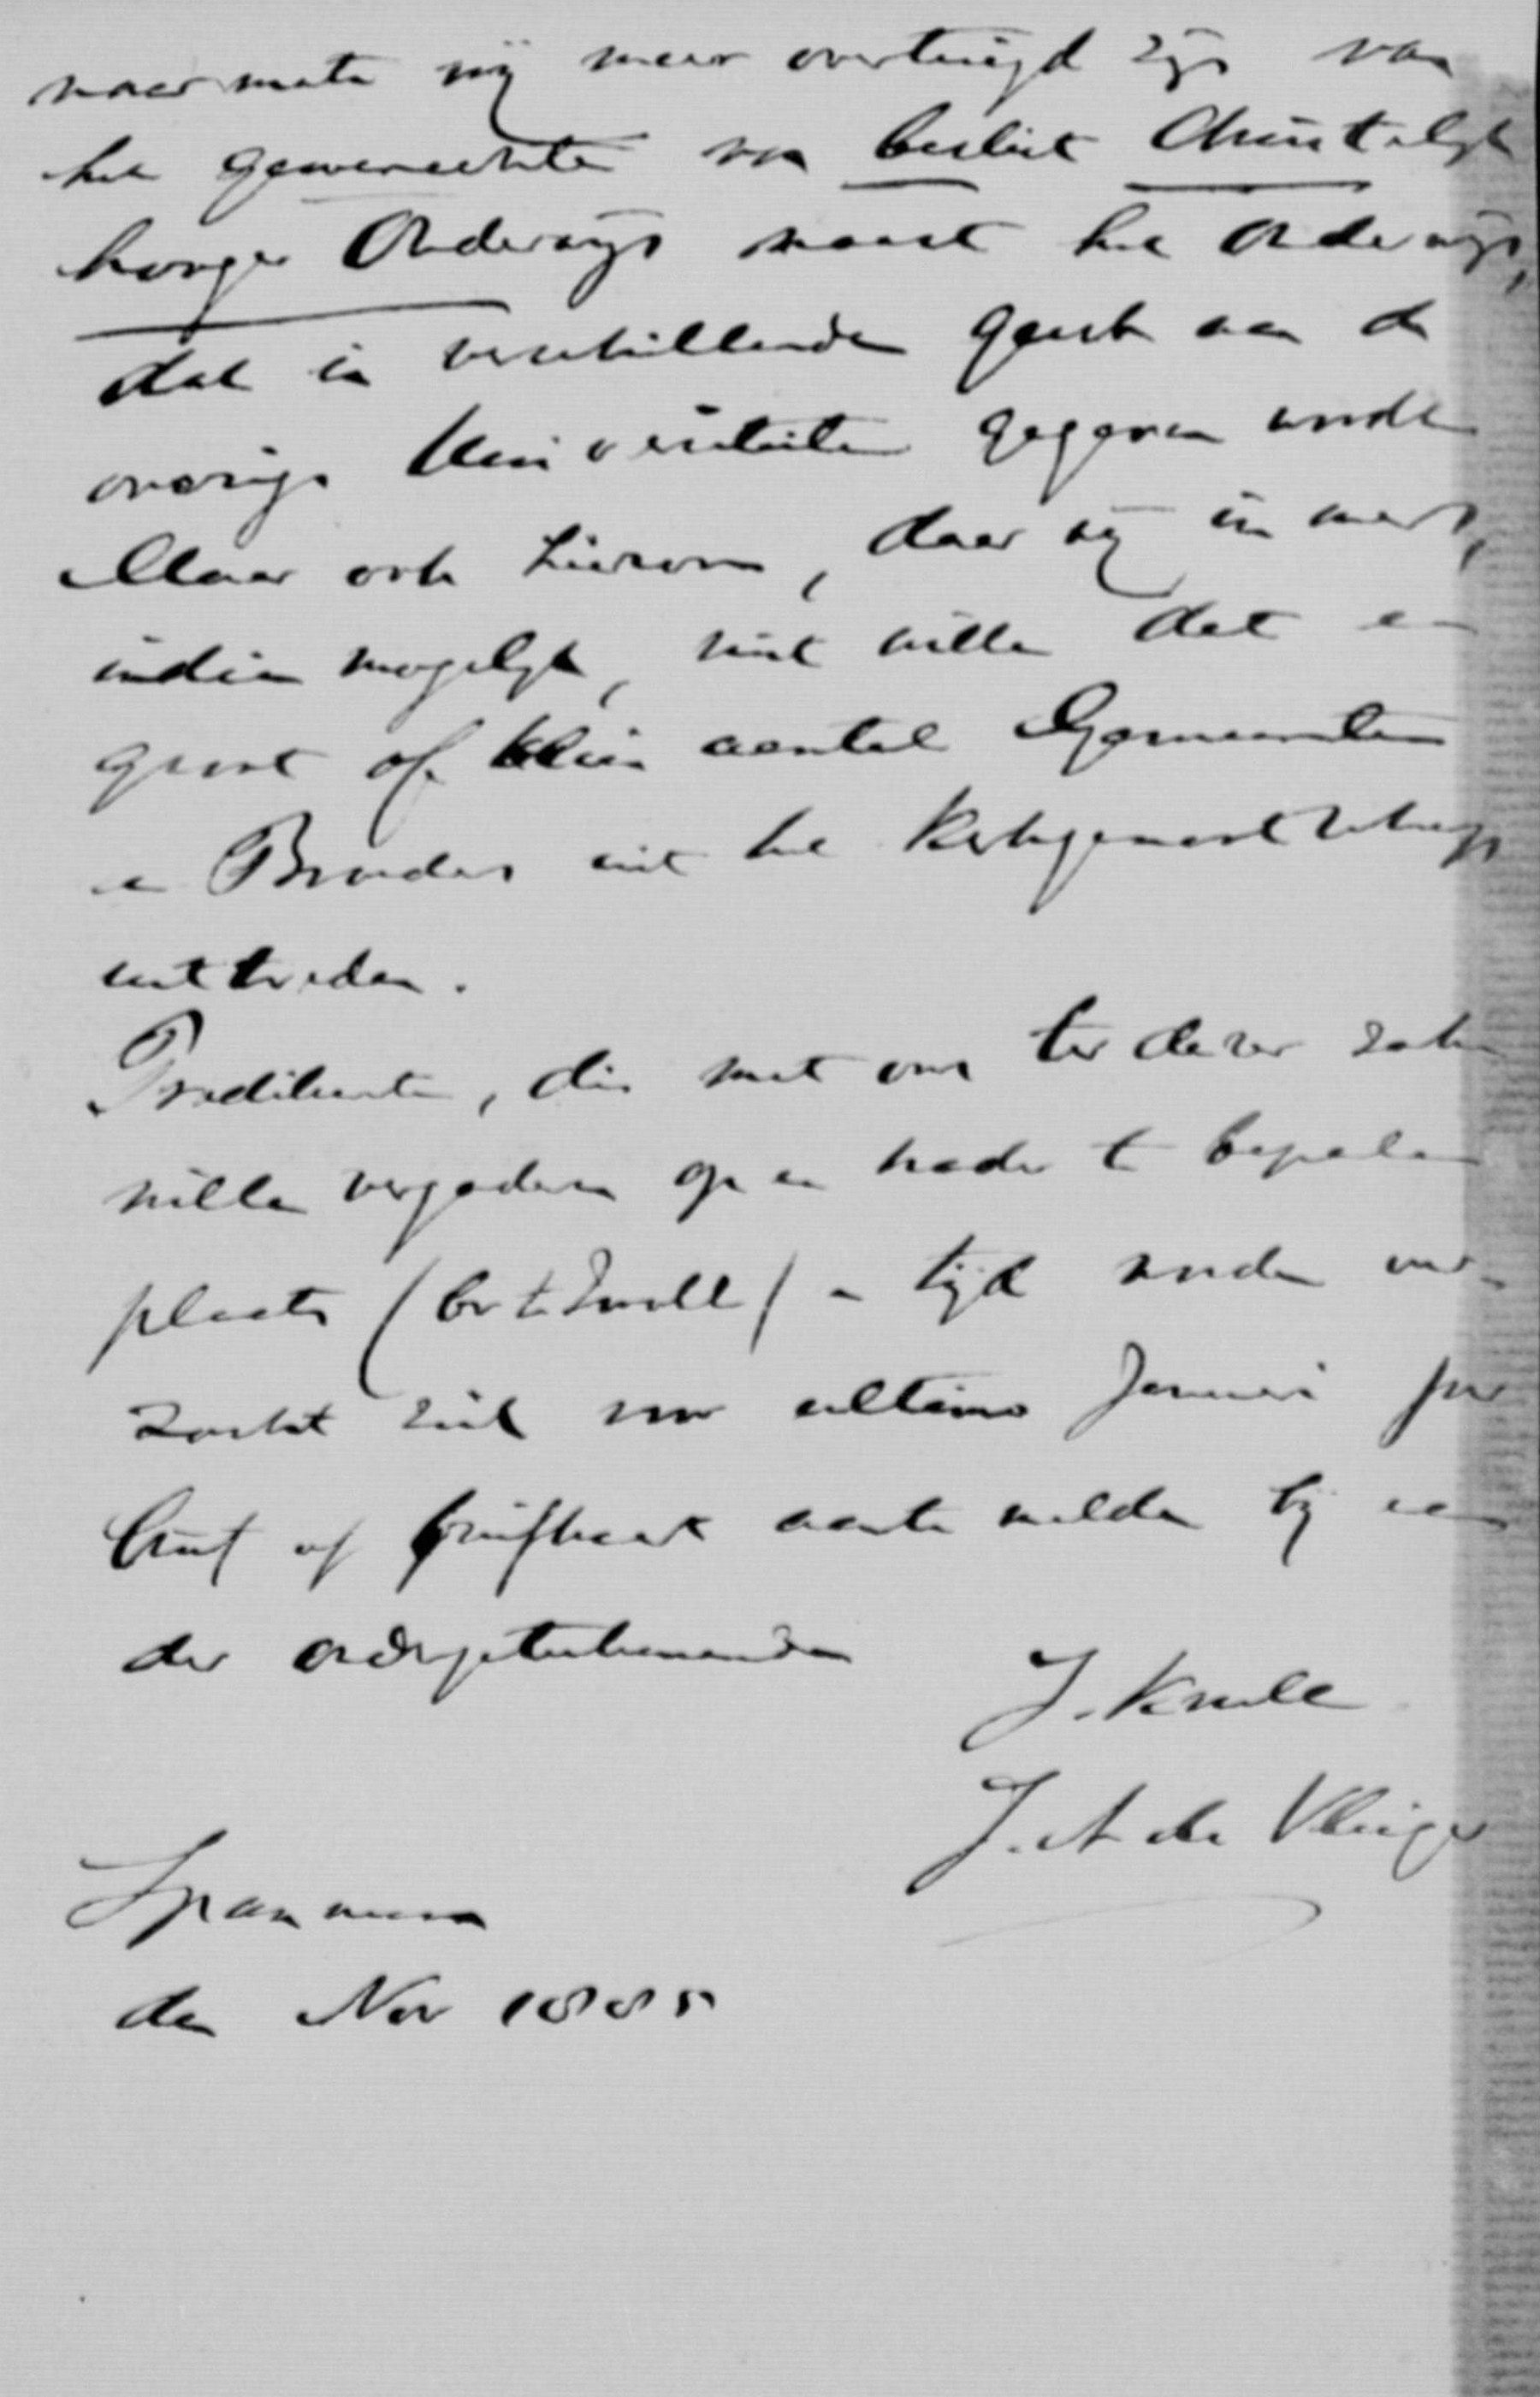 naarmate wij meer overtuigd zijn van
het gewenschte van beslist Christelijk
hooger Onderwijs naast het Onderwijs,
dat in verschillende geest aan de
overige Universiteiten gegeven wordt
Maar ook hierom, daar wij
indien mogelijk, niet willen dat een
groot of klein aantal Gemeenten
en Broeders uit het Kerkgenootschap
uittreden.
Predikanten, die met ons ter dezer zake
willen vergaderen op een nader te bepalen
plaats (bv te Zwolle) en tijd worden ver-
zocht zich voor ultimo Januari per
brief of briefkaart aan te melden bij een
der ondergeteekenenden
J. Knille
J. A de Vlieger
Spannum
den Nov 1885